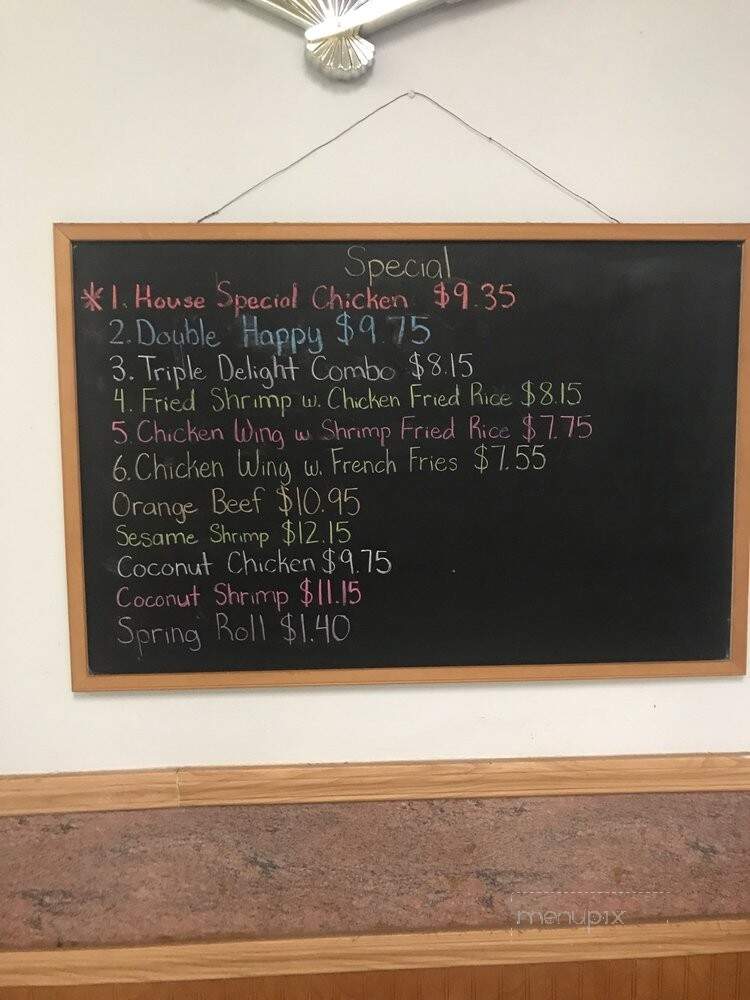 Special
*1. House Special Chicken $9.35
2. Double Happy $9.75
3. Triple Delight Combo $8.15
4. Fried Shrimp w. Chicken Fried Rice $8.15
5. Chicken Wing w Shrimp Fried Rice $7.75
6. Chicken Wing w. French Fries $7.55
Orange Beef $10.95
Sesame Shrimp $12.15
Coconut Chicken $9.75
Coconut Shrimp $11.15
Spring Roll $1.40
menupix